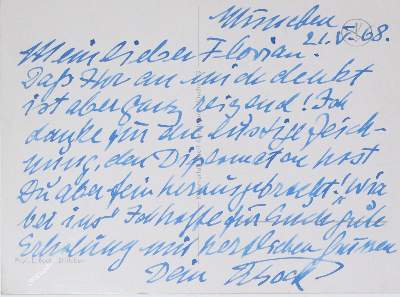 München
21.V.68.
Mein lieber Florian!
Daß Ihr an mich denkt
ist aber ganz reizend! Ich
danke für die lustige Zeich-
nung, den Diplomaten hast
Du aber fein herausgebracht! Wie
bei uns! Ich hoffe für Ende gute
Erholung mit herzlichen Grüssen
Dein